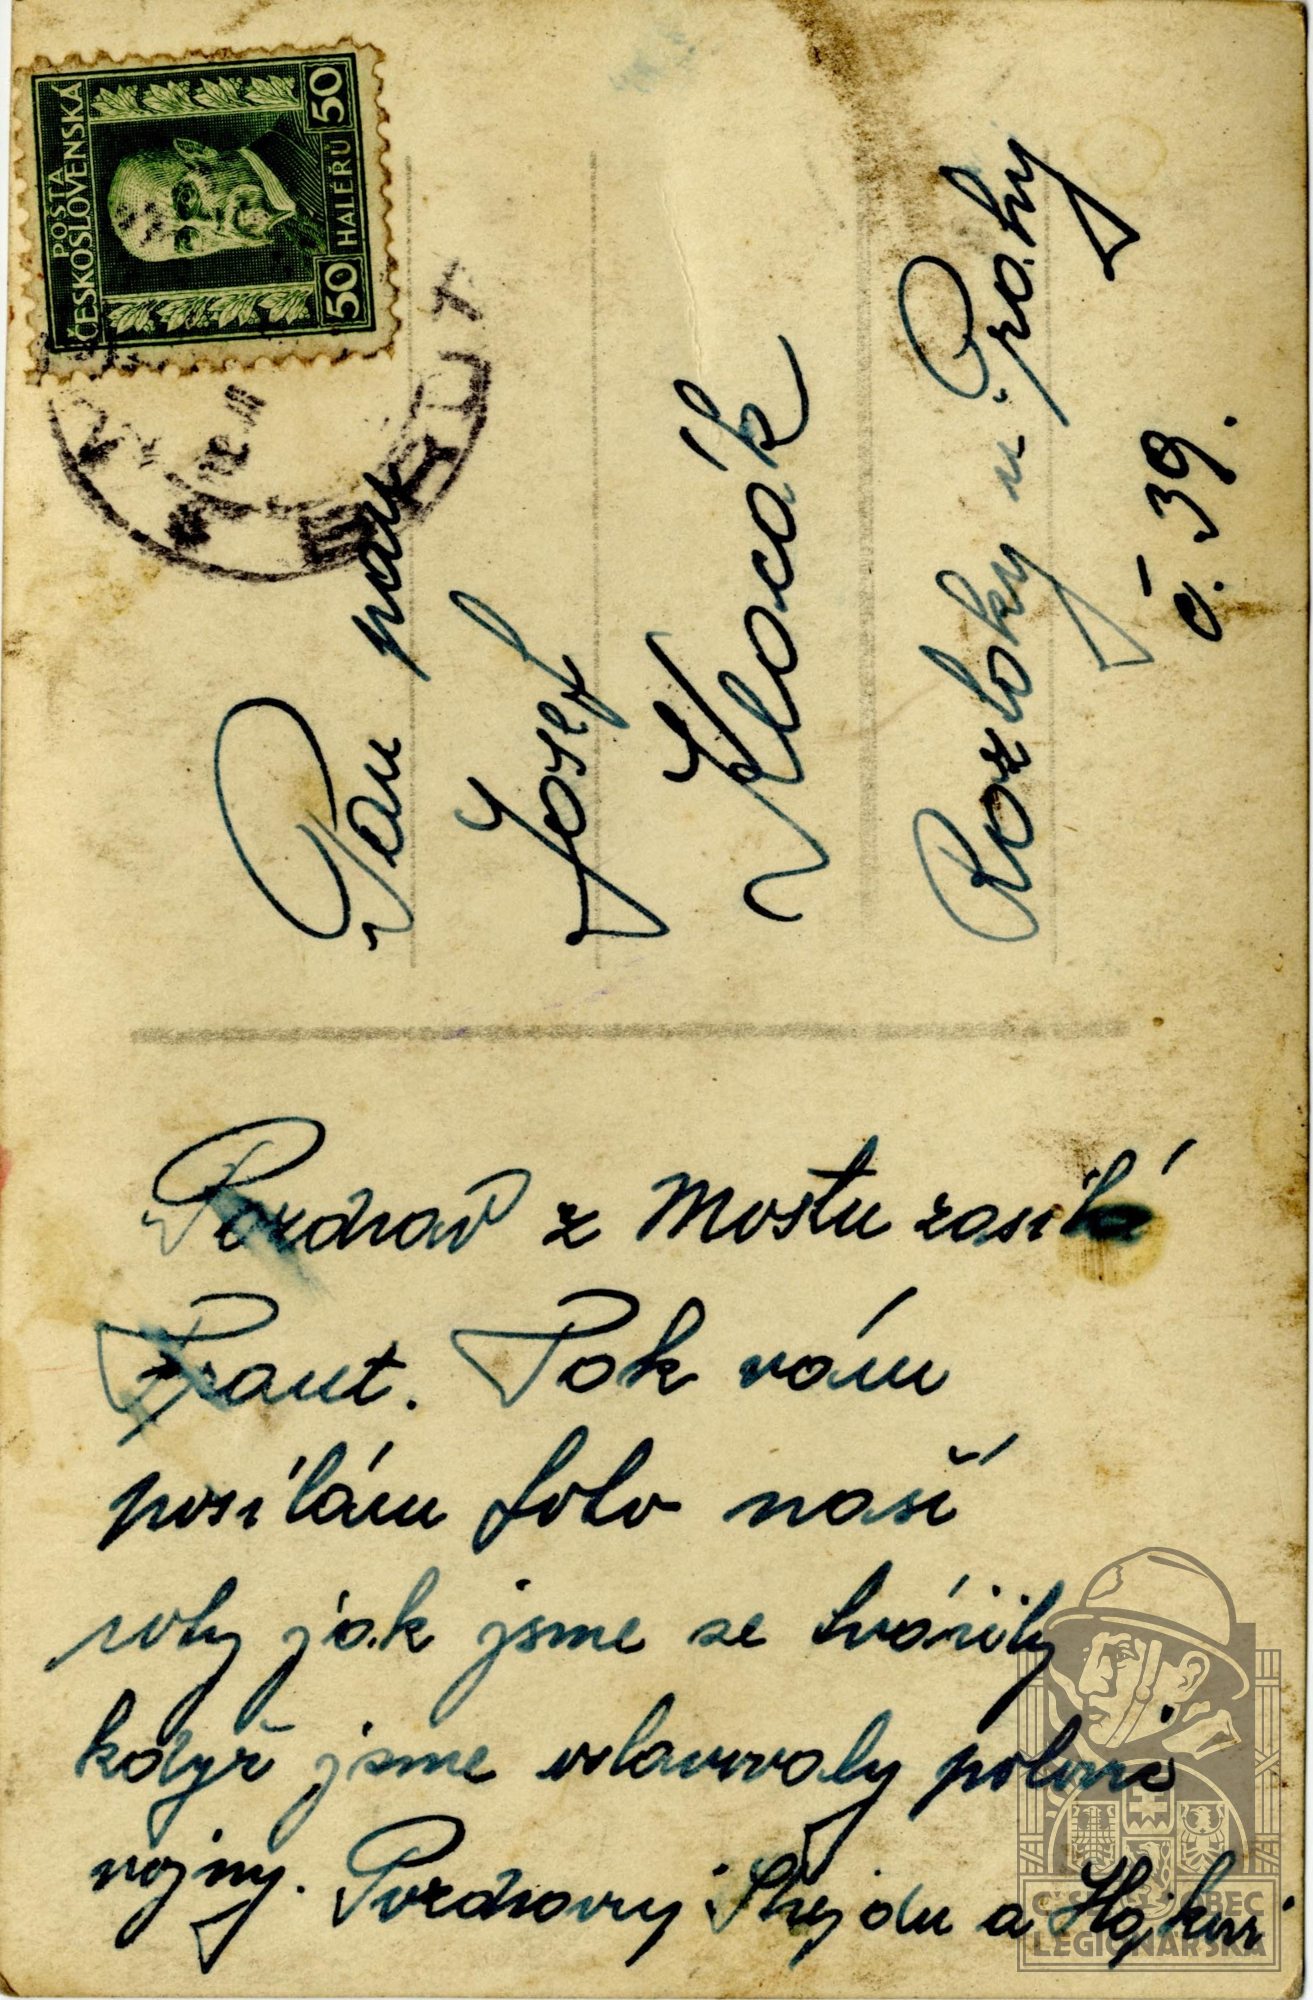 POŠTA
ČESKOSLOVENSKÁ
50 HALÉŘŮ 50
MOST
Pan pan
Josef
Klocák
Roztoky u Prahy
č. 39.
Pozdrav z Mostu zasílá
Frant. Pak vám
posílám foto naší
roty jak jsme se tvářily
když jsme oslavovaly
vojny. Pozdravuj a
ČSR OBEC
LEGIONÁŘSKÁ